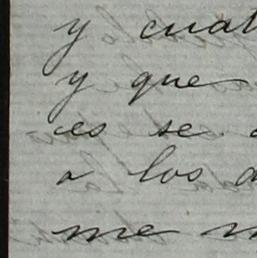 y cuat
y que
es se
a los
me